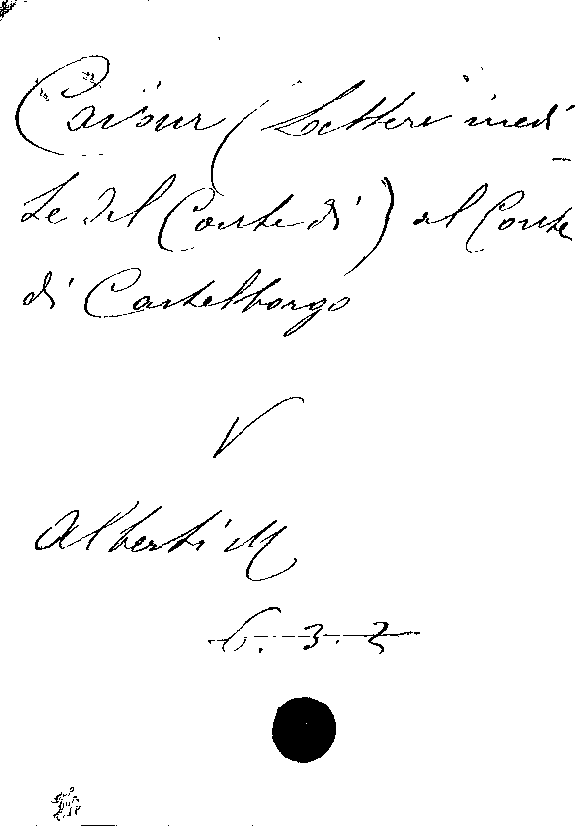 Cavour (Lettere inedi
te del Conte di) al Conte
di Castelborgo
V
Alberti M
6. 3. 2